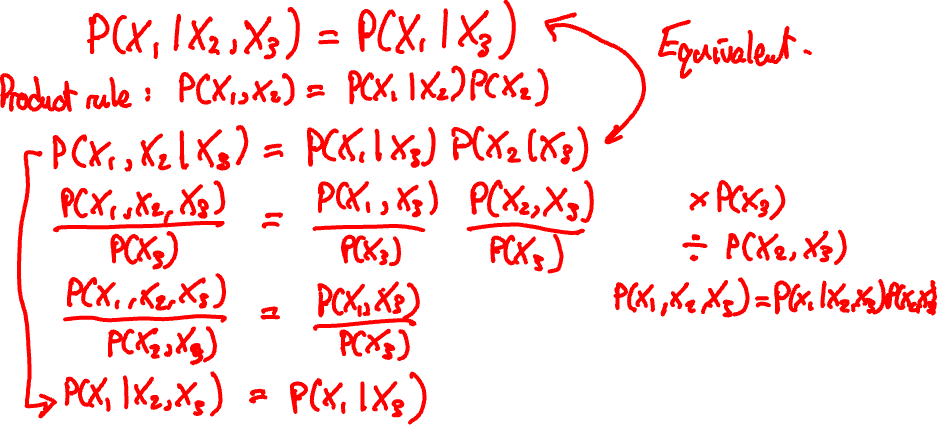 P(X₁|X₂,X₃) = P(X₁|X₃)
Equivalent.
Product rule: P(X₁,X₂) = P(X₁|X₂)P(X₂)
P(X₁,X₂|X₃) = P(X₁|X₃) P(X₂|X₃)
P(X₁,X₂,X₃)/P(X₃) = P(X₁,X₃)/P(X₃) P(X₂,X₃)/P(X₃)
× P(X₃)
÷ P(X₂,X₃)
P(X₁,X₂,X₃)/P(X₂,X₃) = P(X₁,X₃)/P(X₃)
P(X₁,X₂,X₃)=P(X₁|X₂,X₃)P(X₂,X₃)
P(X₁|X₂,X₃) = P(X₁|X₃)